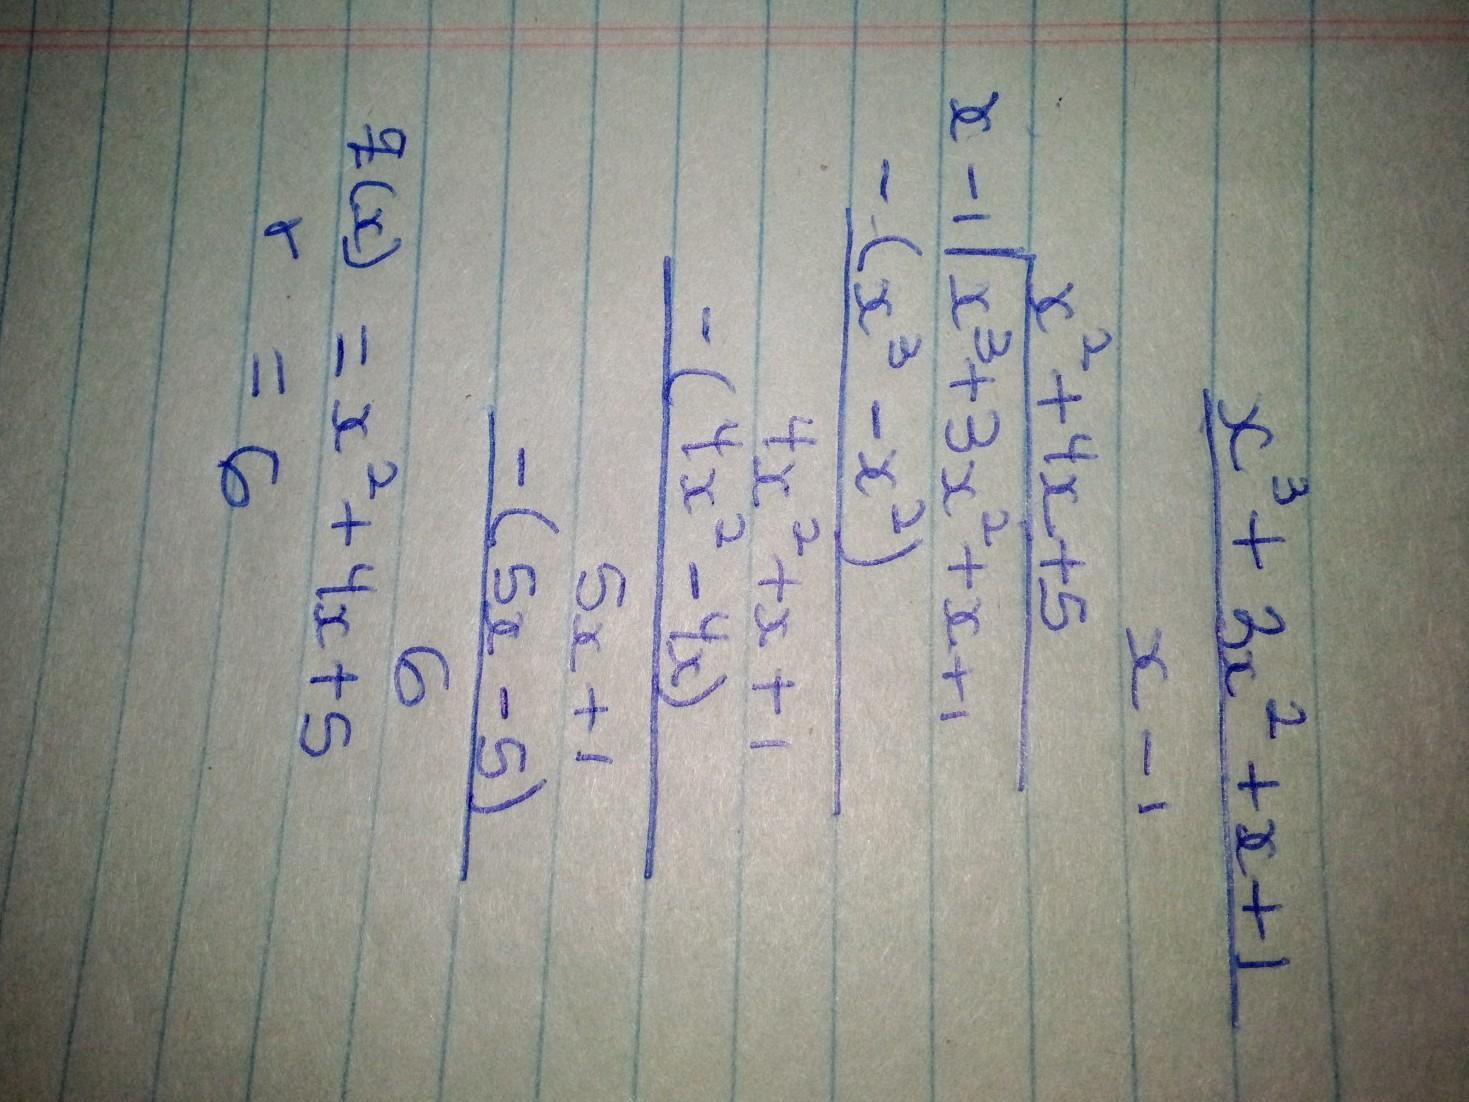 x³ + 3x² + x + 1
x - 1
x² + 4x + 5
x - 1 | x³ + 3x² + x + 1
- (x³ - x²)
4x² + x + 1
- (4x² - 4x)
5x + 1
- (5x - 5)
6
q(x) = x² + 4x + 5
r = 6